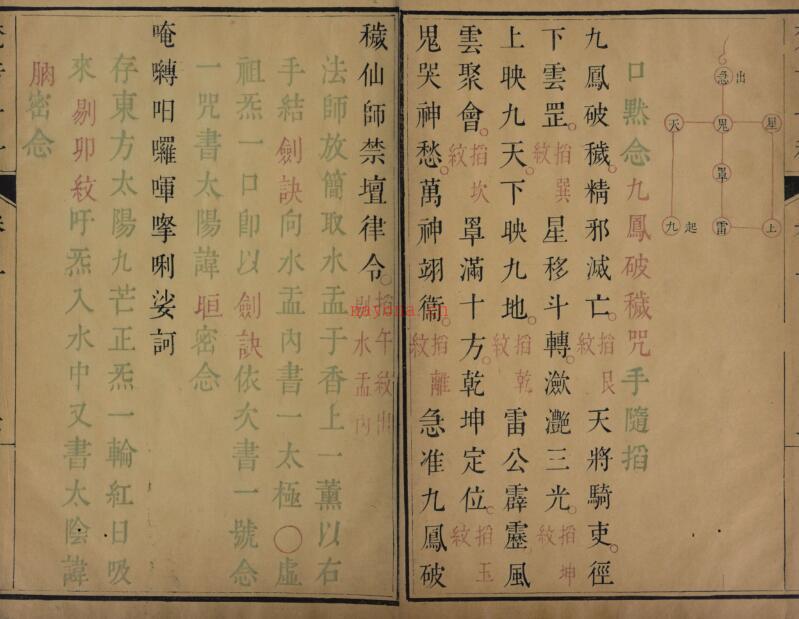 急 出
天 鬼 星
罡
九 起 雷 上
口默念九鳳破穢咒手隨掐
九鳳破穢。精邪滅亡。掐艮紋 天將騎吏。徑
下雲罡。掐巽紋 星移斗轉。瀲灧三光。掐坤紋
上映九天。下映九地。掐乾紋 雷公霹靂。風
雲聚會。掐坎紋 罩滿十方。乾坤定位。掐玉紋
鬼哭神愁。萬神翊衛。掐離紋 急准九鳳破
穢仙師禁壇律令。掐午紋出 水盂內
法師放簡取水盂于香上一薰以右
手結劍訣向水盂內書一太極〇虛
祖炁一口即以劍訣依次書一號念
一咒書太陽諱 密念
唵囀呾囉㖇㨗唎娑訶
存東方太陽九芒正炁一輪紅日吸
來剔卯紋吁炁入水中又書太陰諱
密念
nayona.cn